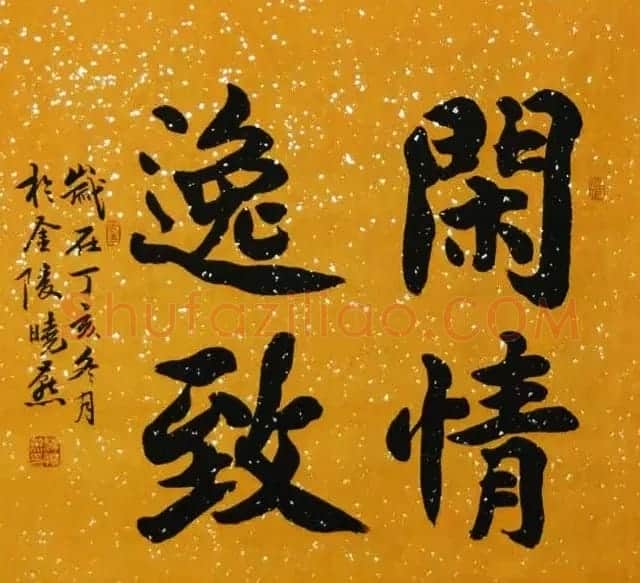 閑情
逸致
歲在丁亥冬月
於金陵曉燕
shufaziliao.COM